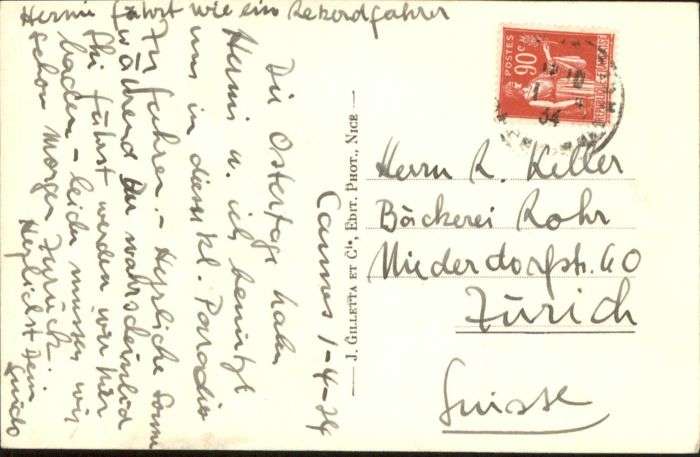 Cannes 1-4-34
Die Ostertage haben
Hermi u. ich benützt
uns in diesem kl. Paradies
zu fahren. - Herrliche Sonne
während Du wahrscheinlich
Ski fährst werden wir hier
baden - leider müssen wir
schon Morgen zurück.
Herzlichst Dein
Guido
Hermi fährt wie ein Rekordfahrer
J. GILLETTA ET Cie, EDIT. PHOT., NICE
POSTES
90c
1
34
Herrn R. Keller
Bäckerei Rohr
Niederdorfstr. 60
Zürich
Suisse